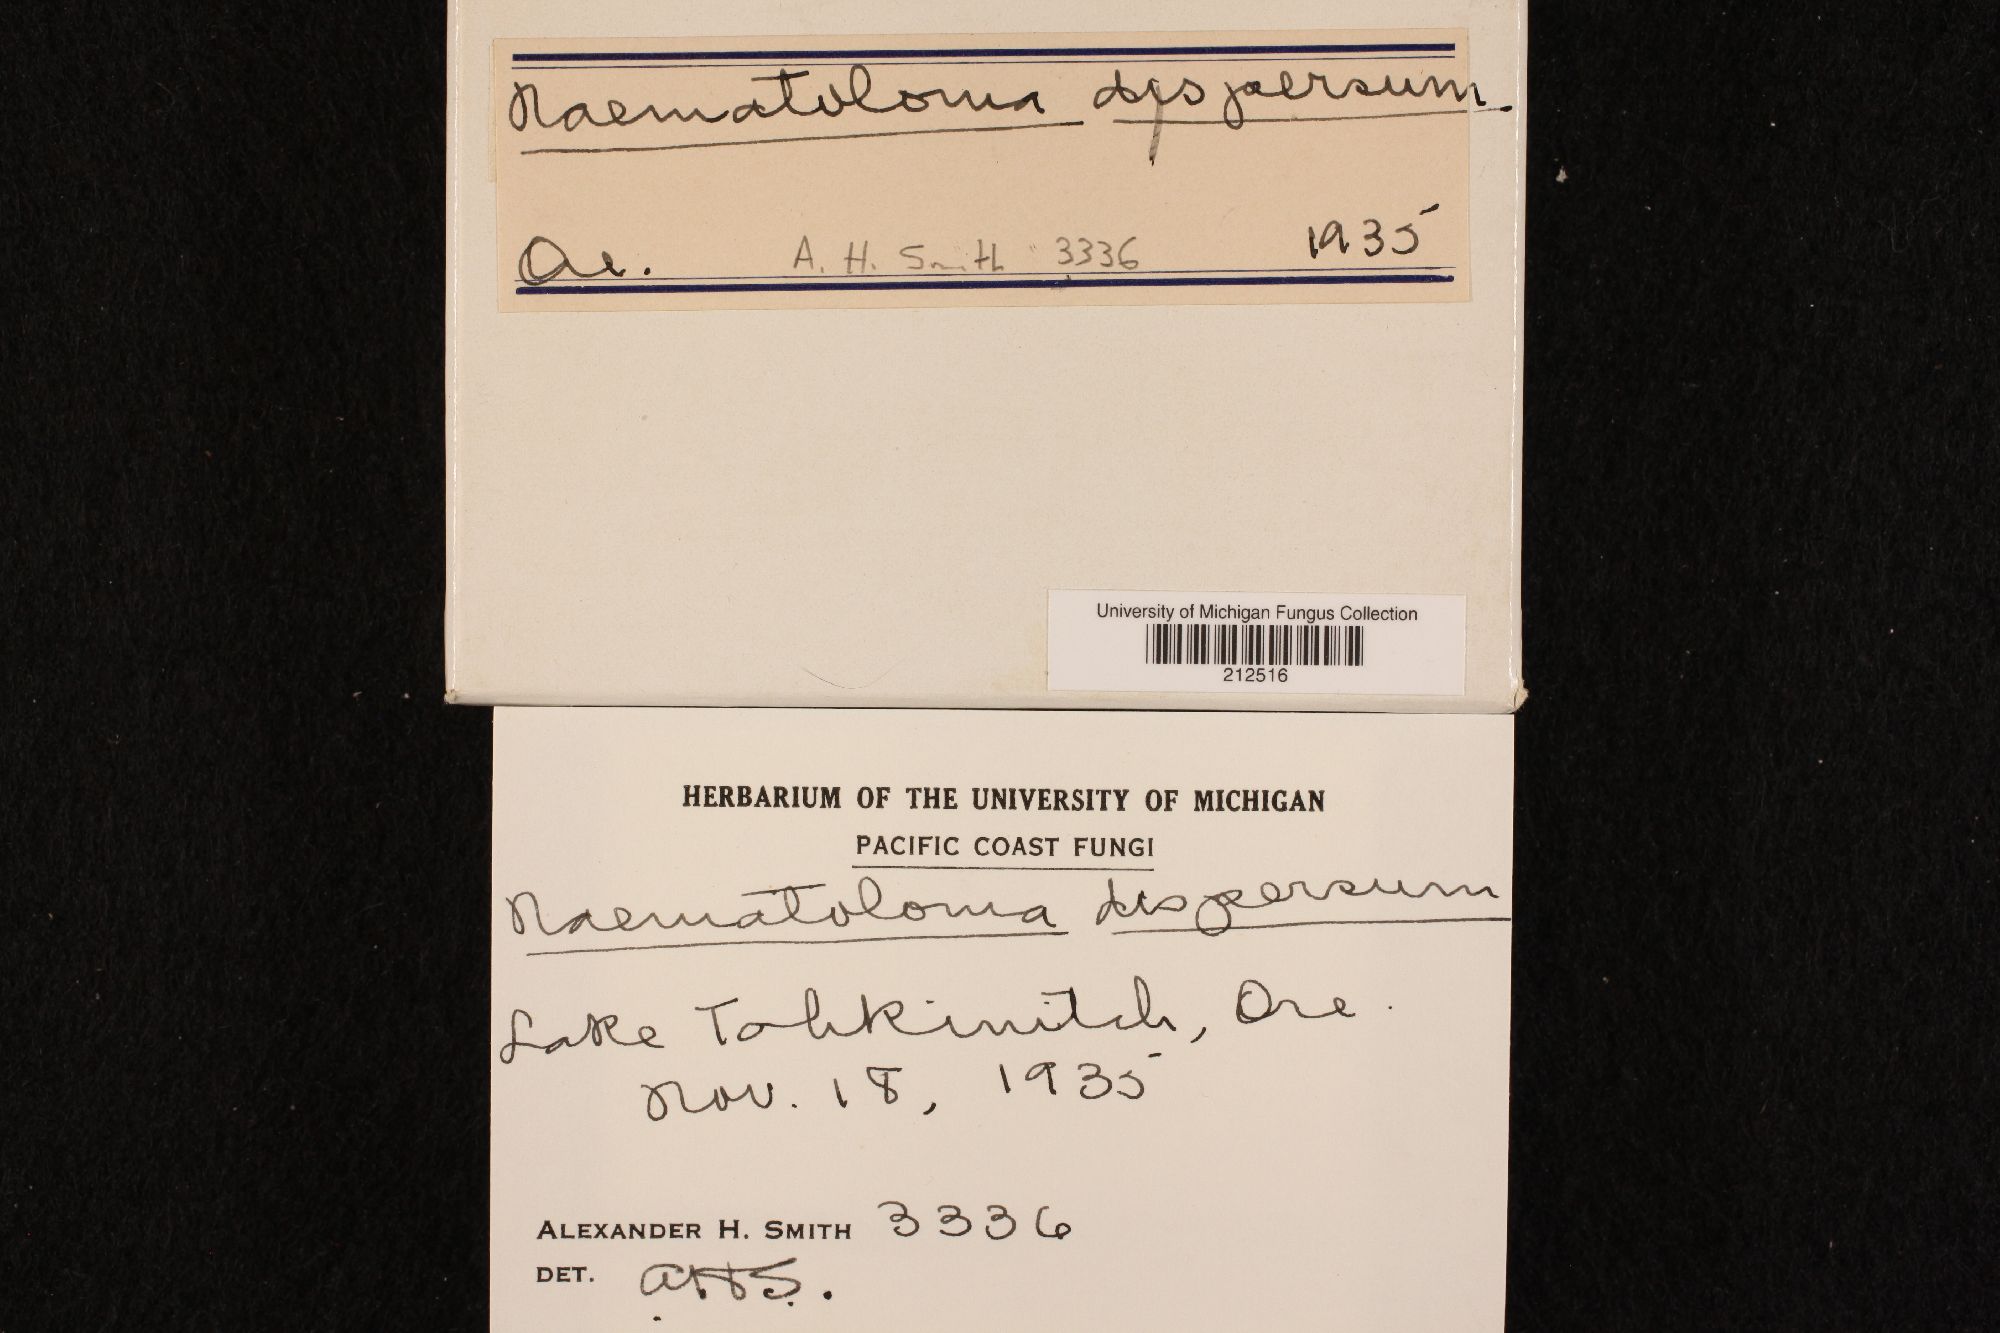 Naematoloma dispersum.
Ore. A. H. Smith 3336 1935
University of Michigan Fungus Collection
212516
HERBARIUM OF THE UNIVERSITY OF MICHIGAN
PACIFIC COAST FUNGI
Naematoloma dispersum
Lake Tahkinitch, Ore.
Nov. 18, 1935
ALEXANDER H. SMITH 3336
DET. AHS.